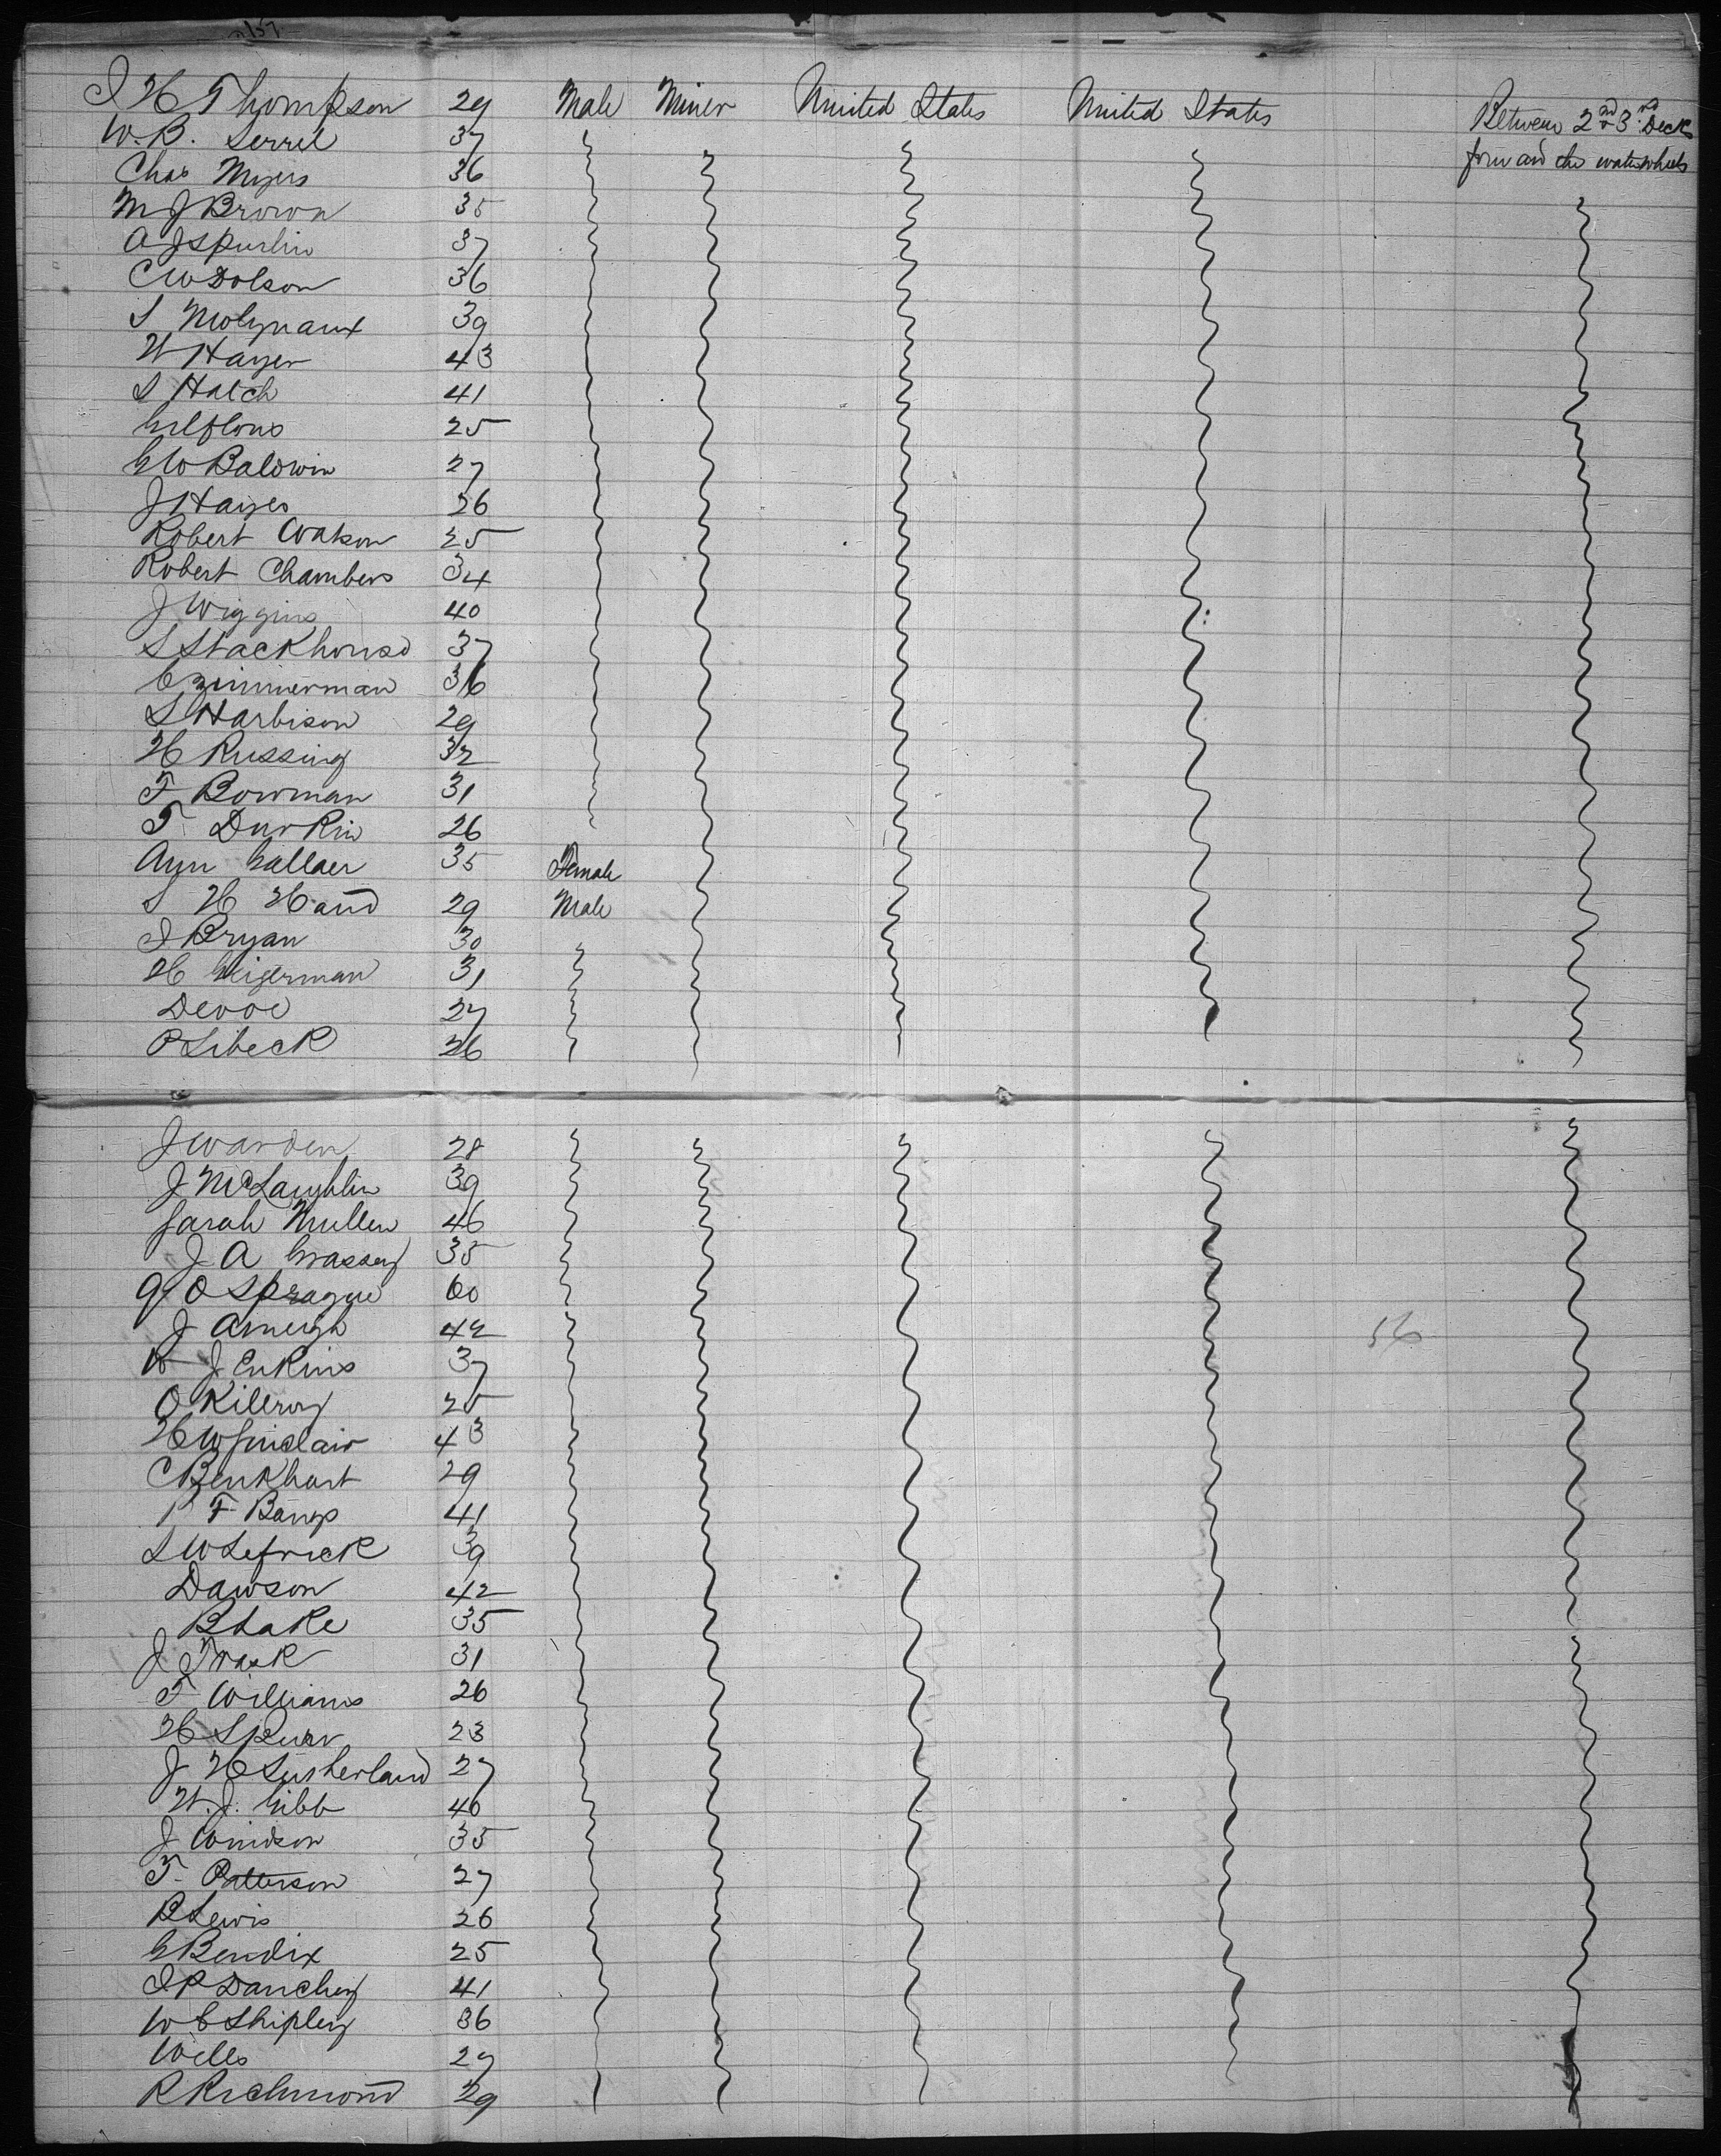 I H Thompson 29 Male Miner United States United States Between 2nd & 3rd Deck
W. B. Serrel 37 forward the waterwheels
Chas Myers 36
M J Brown 35
A J Spurlin 37
C W Dolson 36
S Molynaux 39
W Hayer 43
S Hatch 41
25
G W Baldwin 27
J Hayes 26
Robert Watson 25
Robert Chambers 34
J Wiggins 40
S Stackhouse 37
C Zimmerman 36
S Harbison 29
H Russing 32
F Bowman 31
T Durkin 26
Ann Gallaer 35 Female
S H Hand 29 Male
I Bryan 30
H Geigerman 31
Devoe 27
P Libeck 26
J Warden 28
J McLaughlin 39
Sarah Mullen 46
J A Grassey 35
G O Sprague 60
J Ameigh 42 56
W Jenkins 37
O Killroy 25
H W Sinclair 43
C Benkhart 29
P F Bangs 41
S W Lefrick 39
Dawson 42
B Lake 35
J Trask 31
F Williams 26
H Spurr 23
J H Sutherland 27
W. J. Gibb 40
J Windson 35
T Patterson 27
B Lewis 26
G Bendix 25
I P Danchey 41
W C Shipley 36
Wells 27
R Richmond 29